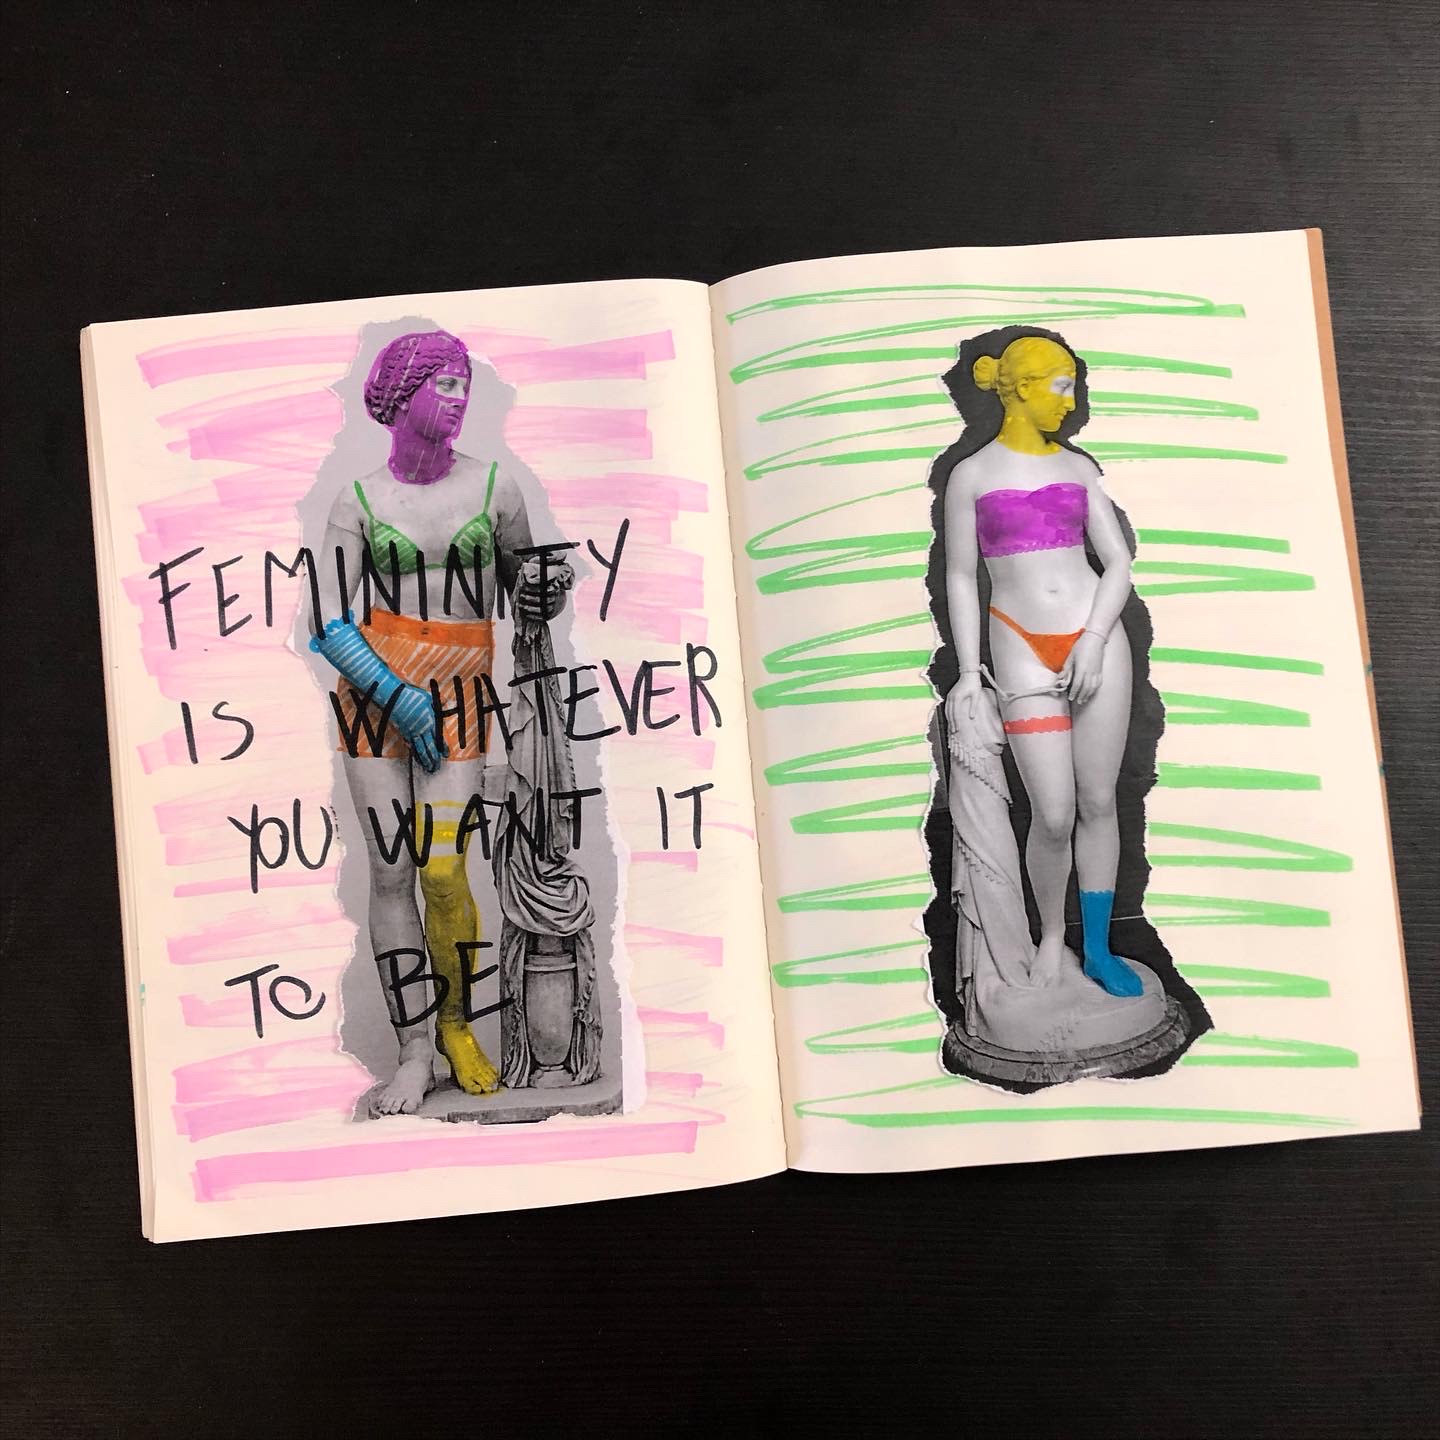 FEMININITY
IS WHATEVER
YOU WANT IT
TO BE